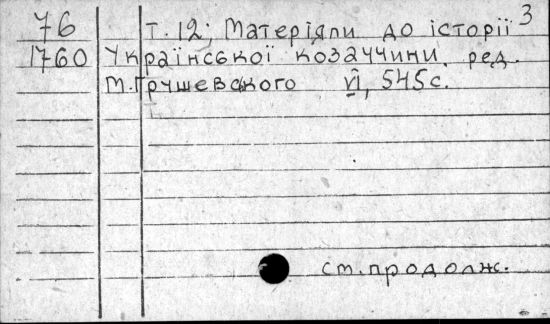 76 т. 12; Матеріяли до історії 3
1760 Української козаччини, ред.
М. Грушевского VI, 545с.
ст. продолж.